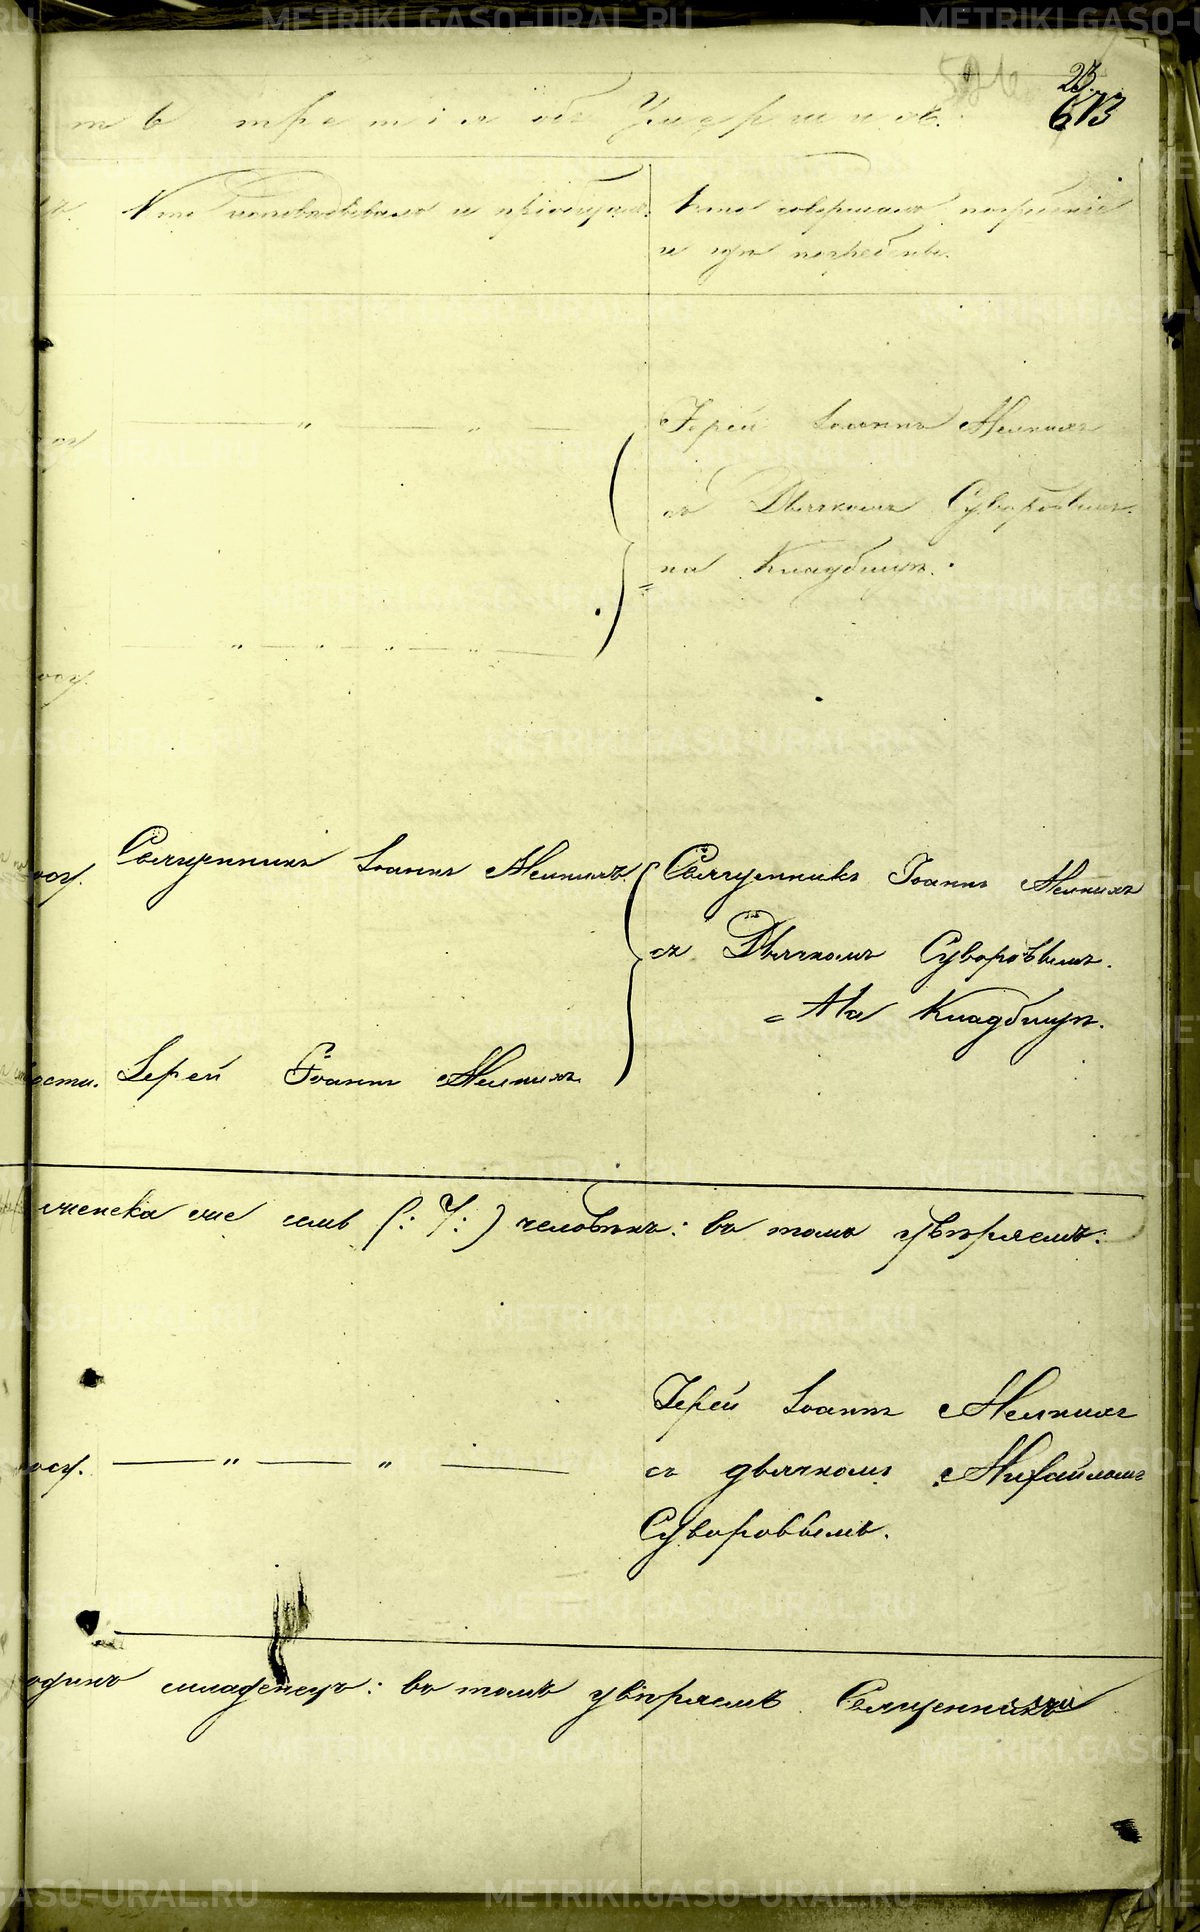 23.
613
ть третія объ Умершихъ.
Кто исповѣдывалъ и пріобщалъ. Кто совершалъ погребеніе
и гдѣ погребены.
Іерей Іоаннъ Мелкихъ
съ Дьячкомъ Суворовымъ.
на Кладбищѣ.
Священникъ Іоаннъ Мелкихъ. Священникъ Іоаннъ Мелкихъ
съ Дьячкомъ Суворовымъ.
На Кладбищѣ.
Іерей Іоаннъ Мелкихъ
женска же семь (: 7 :) человѣкъ: въ томъ увѣряемъ:
Іерей Іоаннъ Мелкихъ
съ дьячкомъ Михаиломъ
Суворовымъ.
одинъ младенецъ: въ томъ увѣряемъ Священникъ
METRIKI.GASO-URAL.RU